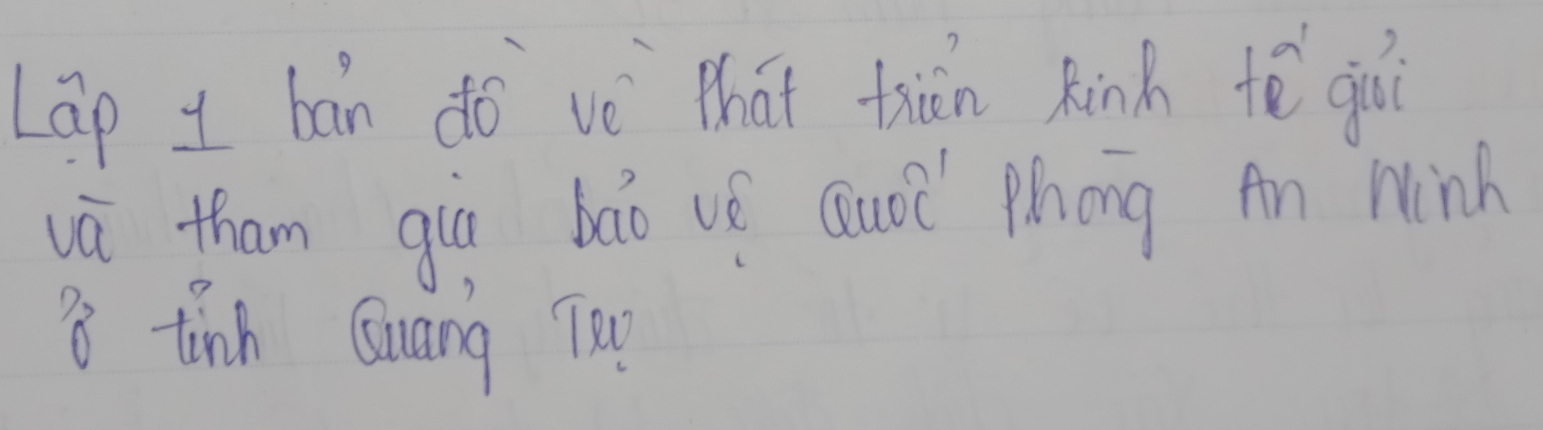 Lập 1 bản đồ về Phát triển kinh tế giỏi
và tham gia bảo vệ Quốc Phòng An Ninh
ở tỉnh Quảng Trị